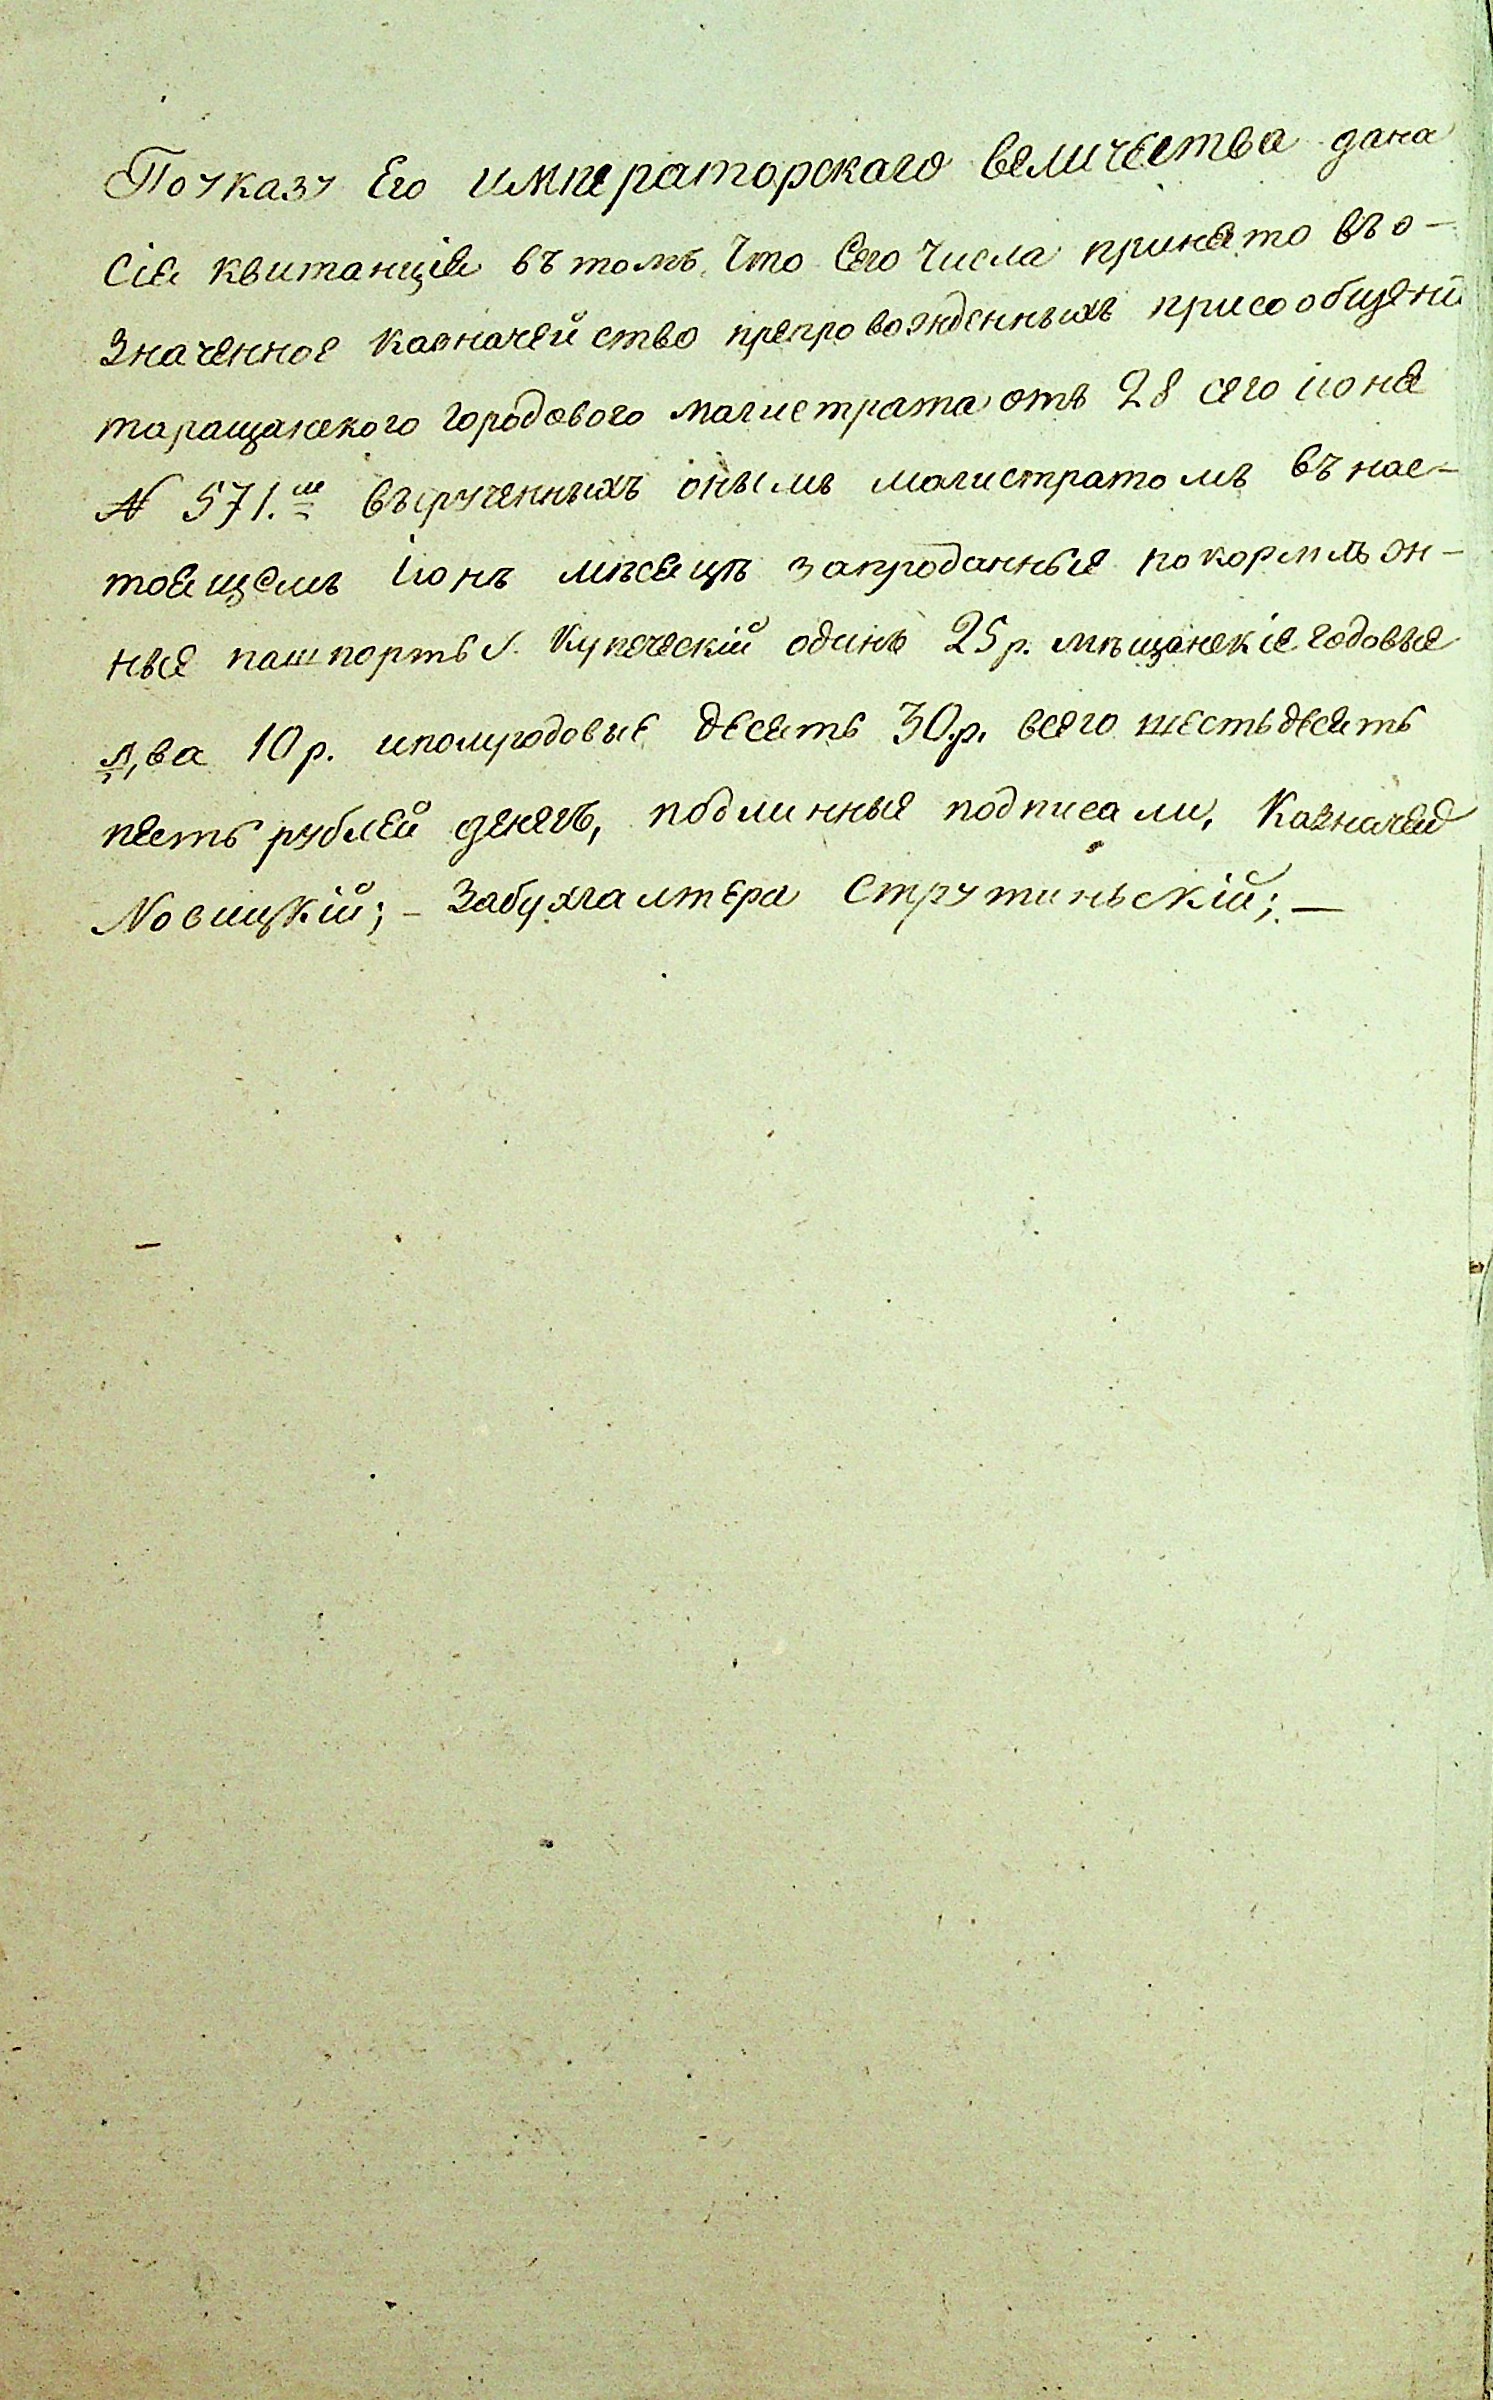 Поуказу Его императорскаго величества дана
сія квитанція въ томъ, Что Сего Числа принято въ о-
значенное казначейство препровожденныхъ присообщенїи
таращанского городового магистрата отъ 28 сего іюня
N 571.ш вырученныхъ онымъ магистратомъ въ нас-
тоящемъ Іюнъ мѣсяцѣ запроданные покормлѣон-
ные пашпорты. Купеческій одинъ 25 р. мѣщанскіе годовые
два 10 р. иполугодовые десять 30.р. всего шестьдесять
песть рублей денегъ, подлинные подписали, Казначей
Новицкій; – Забухгалтера Струтиньскій; —